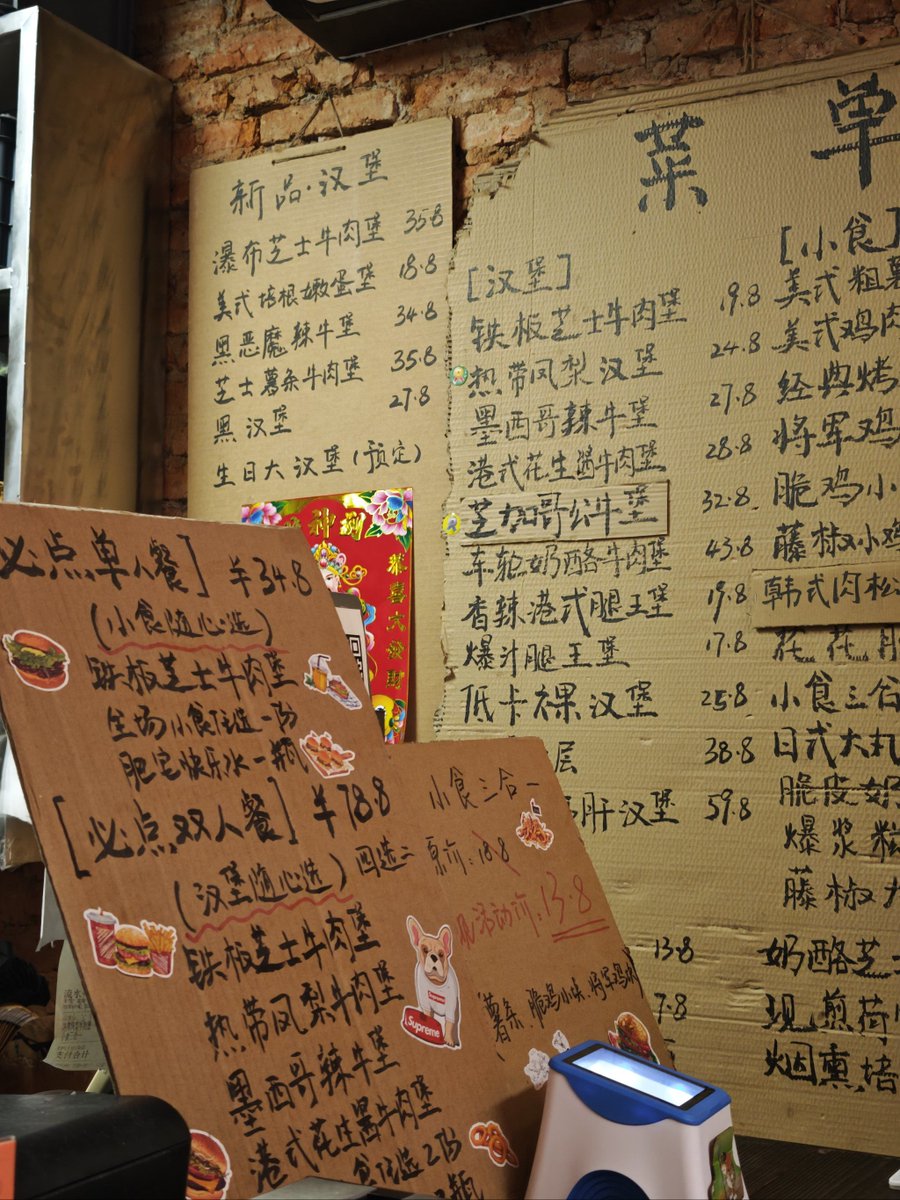 新品·汉堡
瀑布芝士牛肉堡 35.8
美式培根嫩蛋堡 18.8
黑恶魔辣牛堡 34.8
芝士薯条牛肉堡 35.8
黑汉堡 27.8
生日大汉堡(预定)
菜单
[汉堡]
铁板芝士牛肉堡 19.8
热带凤梨汉堡 24.8
墨西哥辣牛堡 27.8
港式花生酱牛肉堡 28.8
芝加哥公牛堡 32.8
车轮奶酪牛肉堡 43.8
香辣港式腿王堡 19.8
爆汁腿王堡 17.8
低卡裸汉堡 25.8
层 38.8
肝汉堡 59.8
13.8
7.8
[小食]
美式粗薯
美式鸡肉
经典烤
将军鸡
脆鸡小
藤椒小鸡
韩式肉松
小食三合
日式大丸
脆皮奶
爆浆粒
藤椒
奶酪芝士
现煎荷
烟熏培
恭喜发财
必点单人餐] ¥34.8
(小食随心选)
铁板芝士牛肉堡
全场小食任选一份
肥宅快乐水一瓶
[必点双人餐] ¥78.8
(汉堡随心选)四选二
铁板芝士牛肉堡
热带凤梨牛肉堡
墨西哥辣牛堡
港式花生酱牛肉堡
食任选2份
瓶
小食三合一
原价:18.8
活动价:13.8
薯条 脆鸡小块 将军鸡
Supreme
支付合计